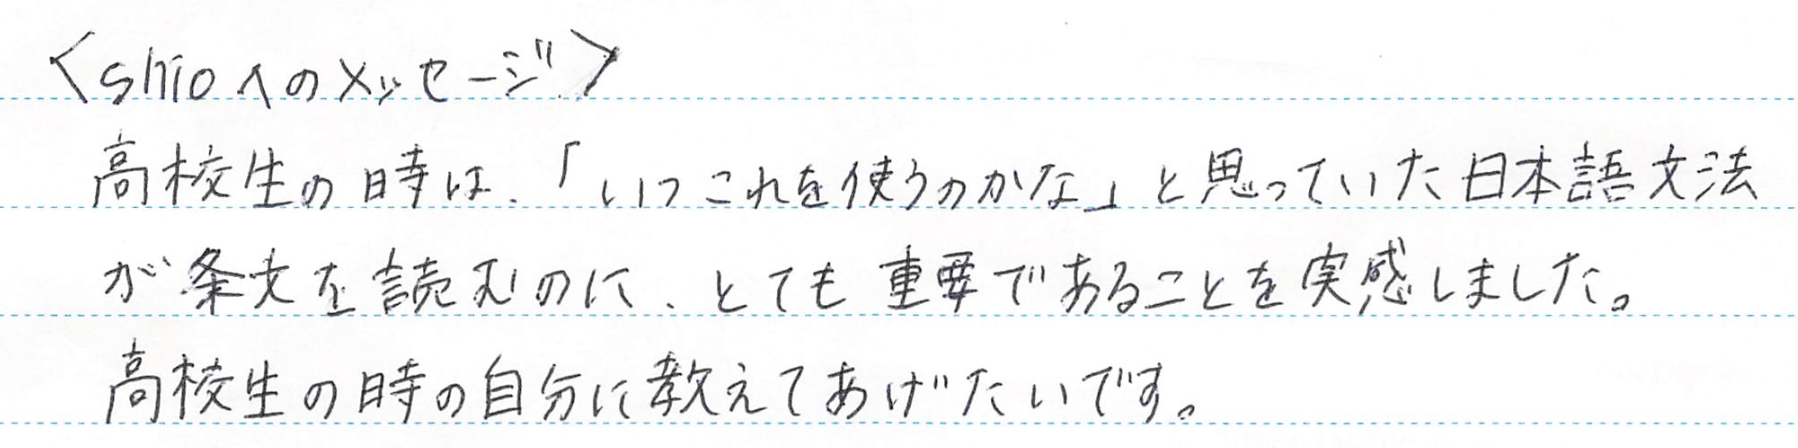 〈shioへのメッセージ〉
高校生の時は、「いつこれを使うのかな」と思っていた日本語文法
が条文を読むのに、とても重要であることを実感しました。
高校生の時の自分に教えてあげたいです。